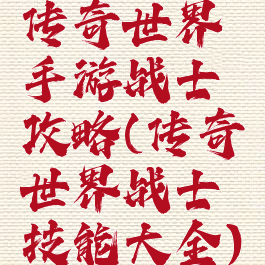 传奇世界
手游战士
攻略(传奇
世界战士
技能大全)